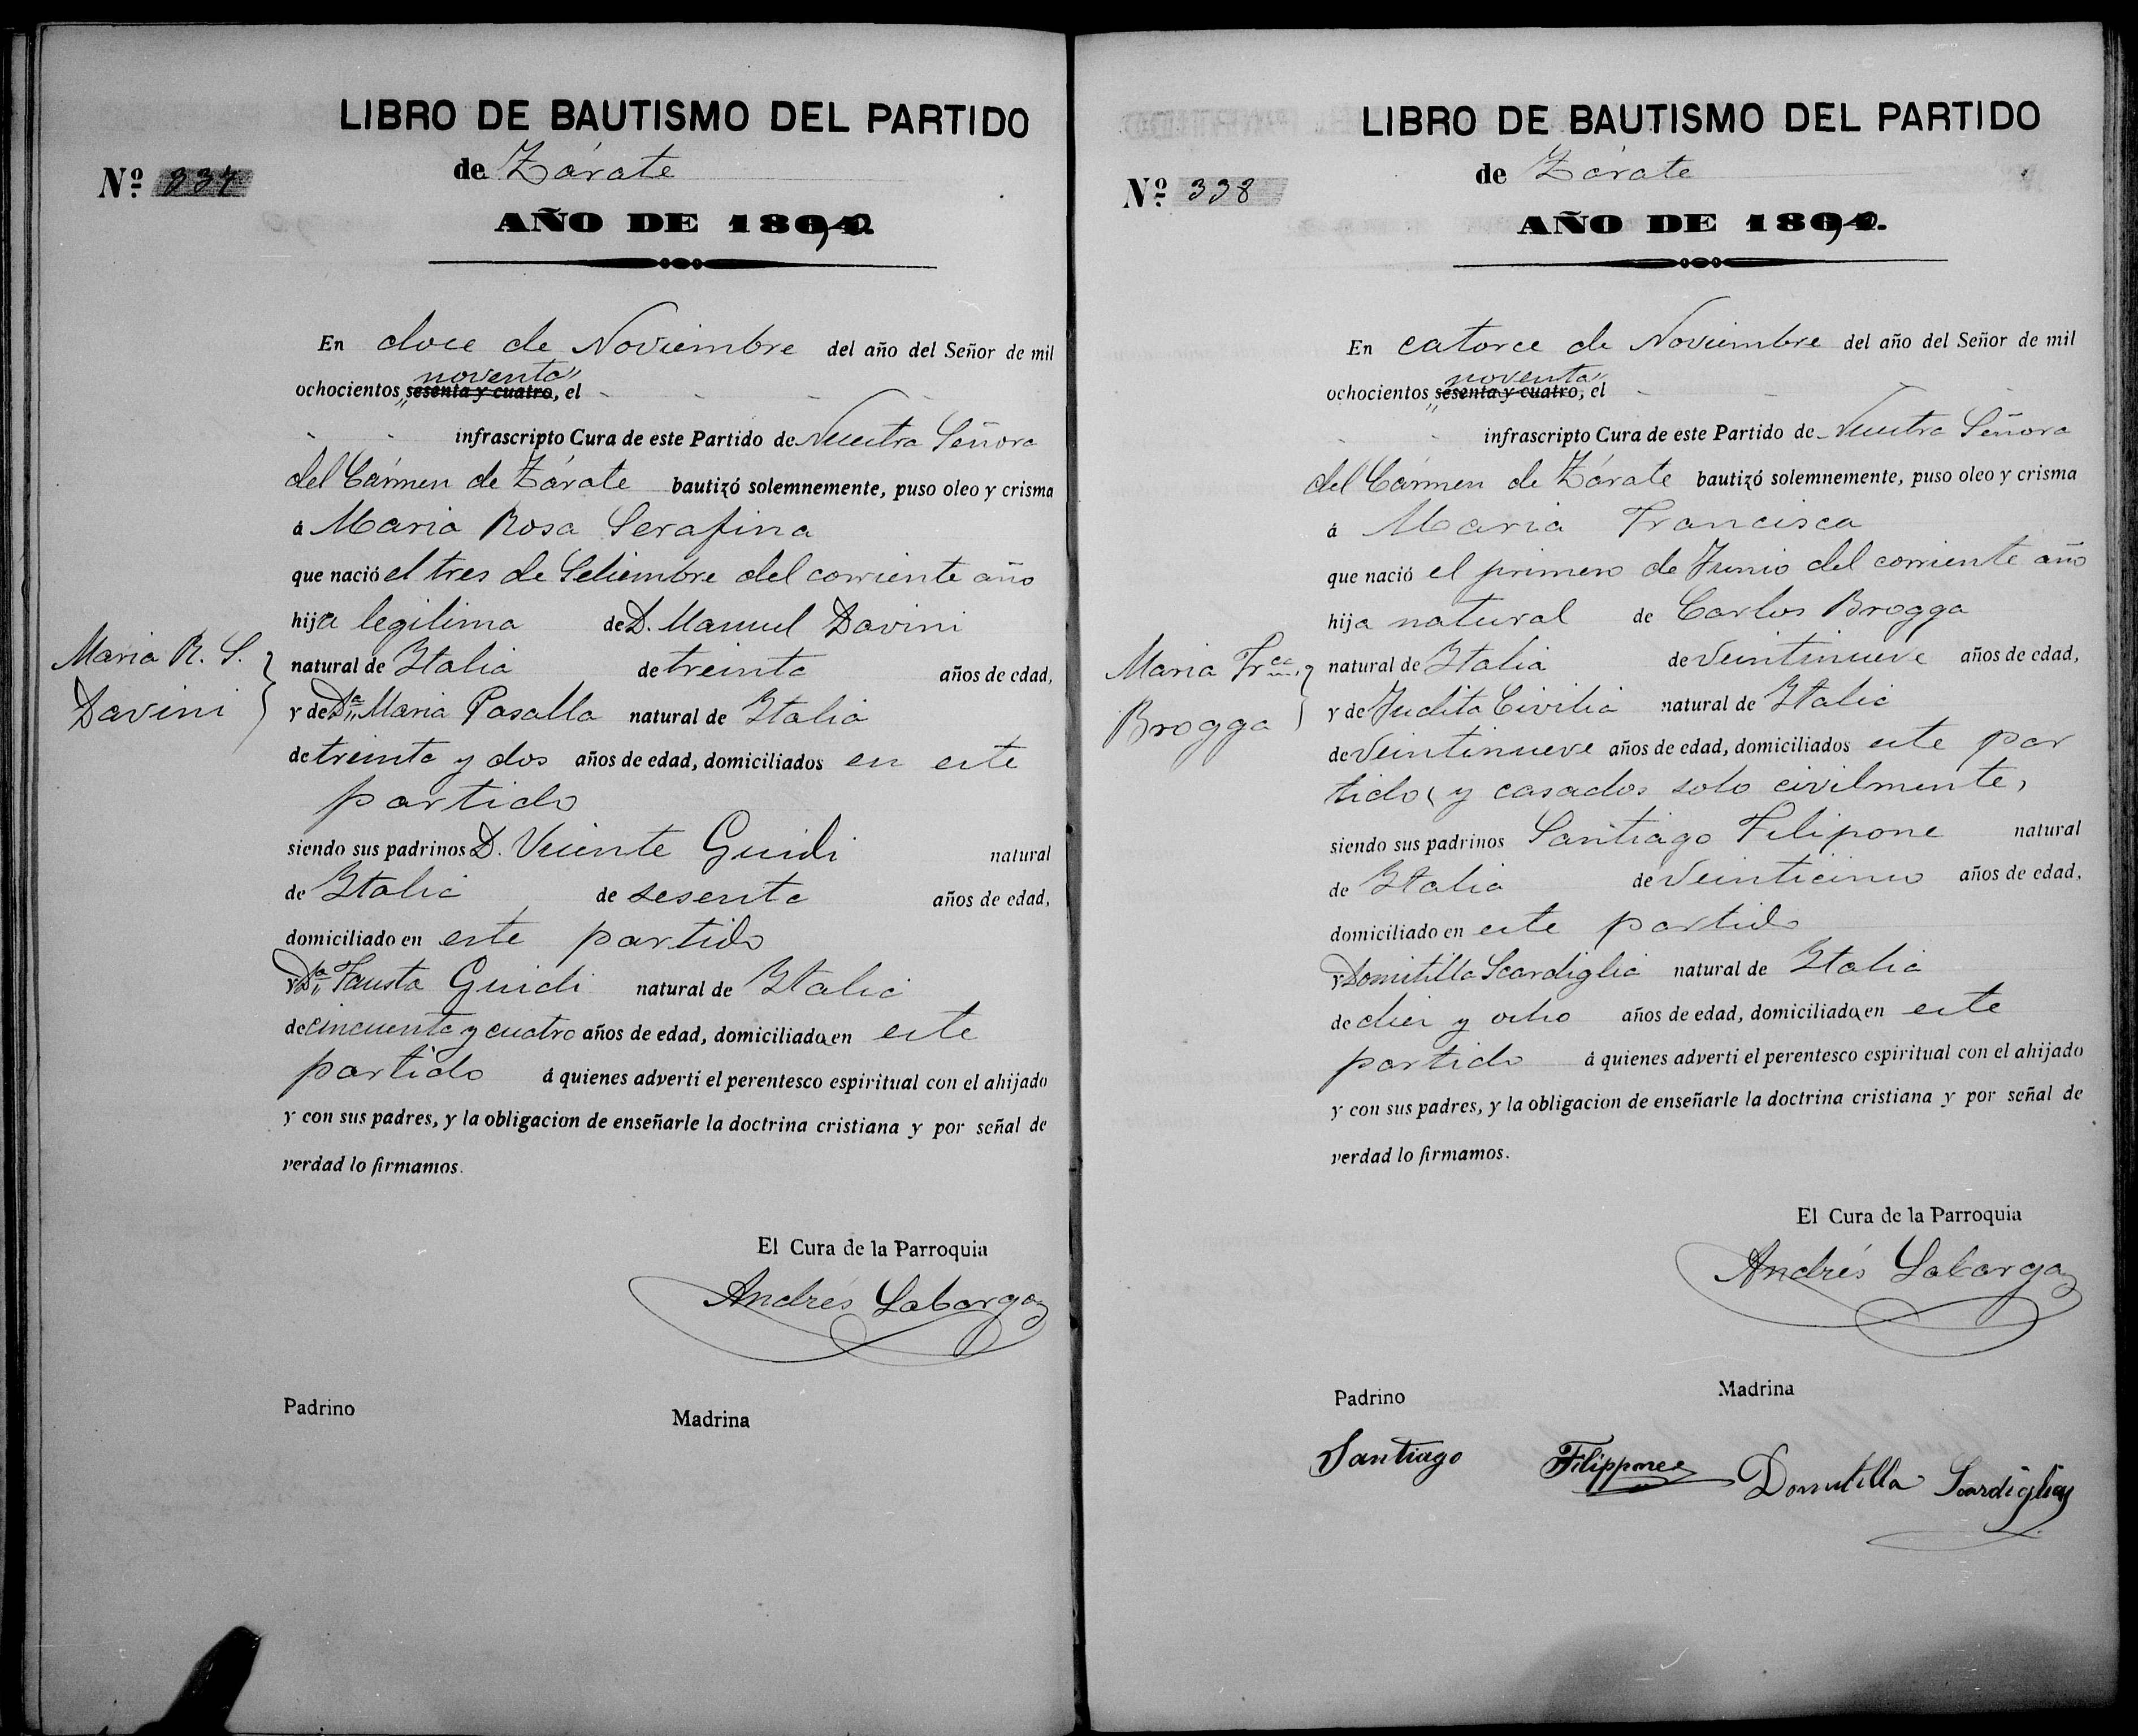 LIBRO DE BAUTISMO DEL PARTIDO
de Zárate
Nº 337
AÑO DE 1890.
En doce de Noviembre del año del Señor de mil
noventa
ochocientos sesenta y cuatro, el
infrascripto Cura de este Partido de Nuestra Señora
del Cármen de Zárate bautizó solemnemente, puso oleo y crisma
á Maria Rosa Serafina
que nació el tres de Setiembre del corriente año
hija legitima de D. Manuel Davini
Maria R. S.
Davini
natural de Italia de treinta años de edad,
y de Dª Maria Pasalla natural de Italia
de treinta y dos años de edad, domiciliados en este
partido
siendo sus padrinos D. Vicente Guidi natural
de Italia de sesenta años de edad,
domiciliado en este partido
y Dª Fausta Guidi natural de Italia
de cincuenta y cuatro años de edad, domiciliada en este
partido á quienes advertí el perentesco espiritual con el ahijado
y con sus padres, y la obligacion de enseñarle la doctrina cristiana y por señal de
verdad lo firmamos.
El Cura de la Parroquia
Andrés Labarga
Padrino Madrina
LIBRO DE BAUTISMO DEL PARTIDO
de Zárate
Nº 338
AÑO DE 1890.
En catorce de Noviembre del año del Señor de mil
noventa
ochocientos sesenta y cuatro, el
infrascripto Cura de este Partido de Nuestra Señora
del Cármen de Zárate bautizó solemnemente, puso oleo y crisma
á Maria Francisca
que nació el primero de Junio del corriente año
hija natural de Carlos Brogga
Maria Frca
Brogga
natural de Italia de Veintinueve años de edad,
y de Judita Civilia natural de Italia
de Veintinueve años de edad, domiciliados este par
tido, y casados solo civilmente,
siendo sus padrinos Santiago Filipone natural
de Italia de Veinticinco años de edad,
domiciliado en este partido
y Domitilla Scardiglia natural de Italia
de diez y ocho años de edad, domiciliada en este
partido á quienes advertí el perentesco espiritual con el ahijado
y con sus padres, y la obligacion de enseñarle la doctrina cristiana y por señal de
verdad lo firmamos.
El Cura de la Parroquia
Andrés Labarga
Padrino Madrina
Santiago Filippone Domitilla Scardiglia